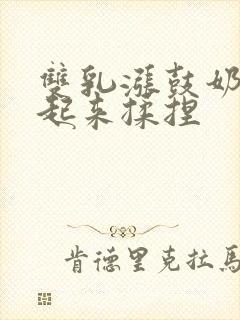 雙乳漲鼓奶
起来揉捏
肯德里克拉馬